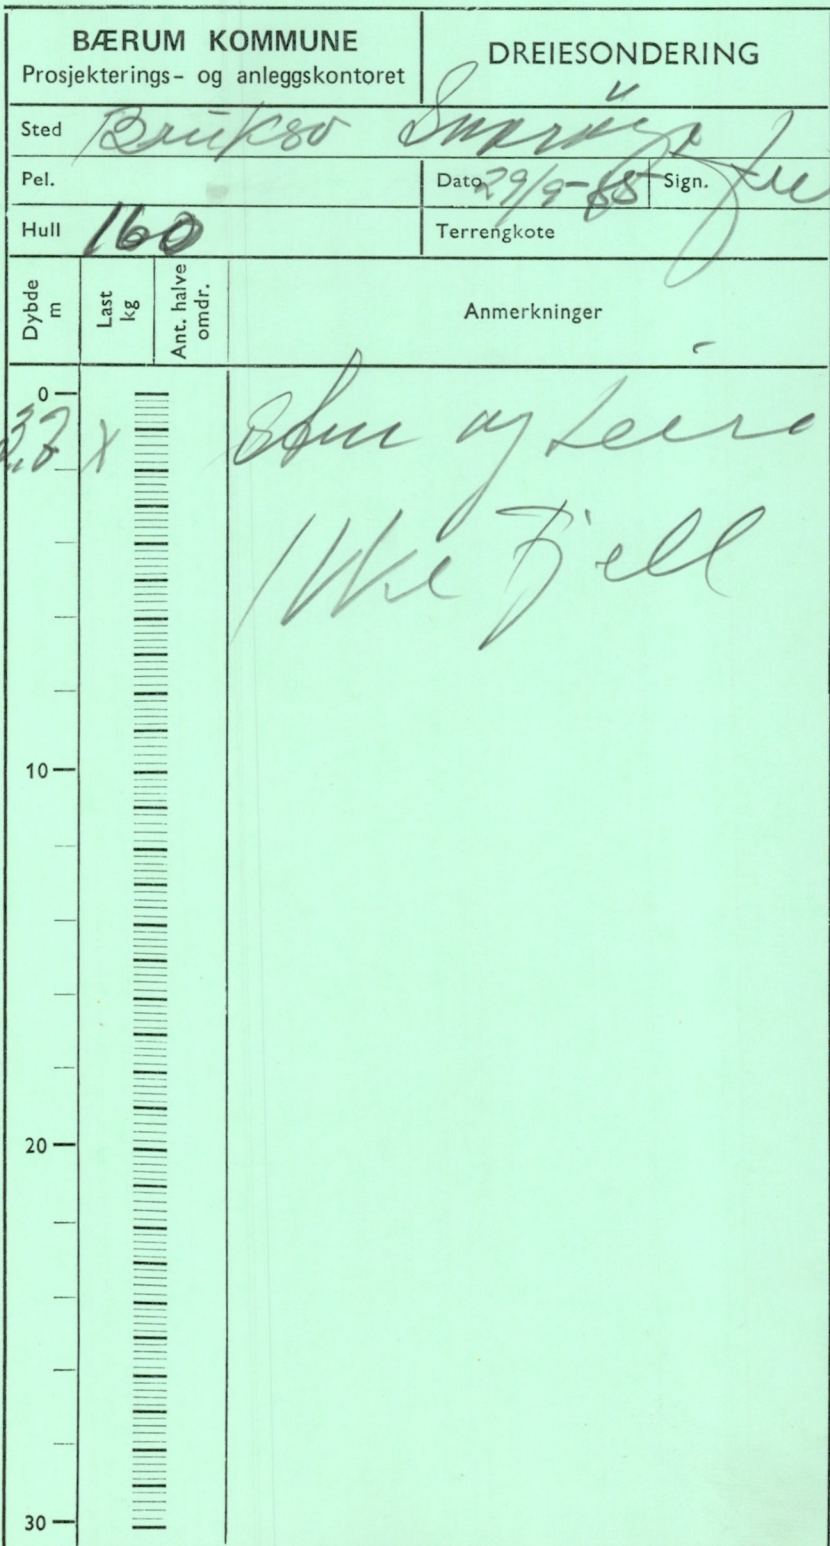 BÆRUM KOMMUNE
Prosjekterings- og anleggskontoret
DREIESONDERING
Sted Snarøya
Pel.
Dato 29/9-85 Sign.
Hull 160
Terrengkote
Dybde m
Last kg
Ant. halve omdr.
Anmerkninger
0
X og Leire
Ikke Fjell
10
20
30